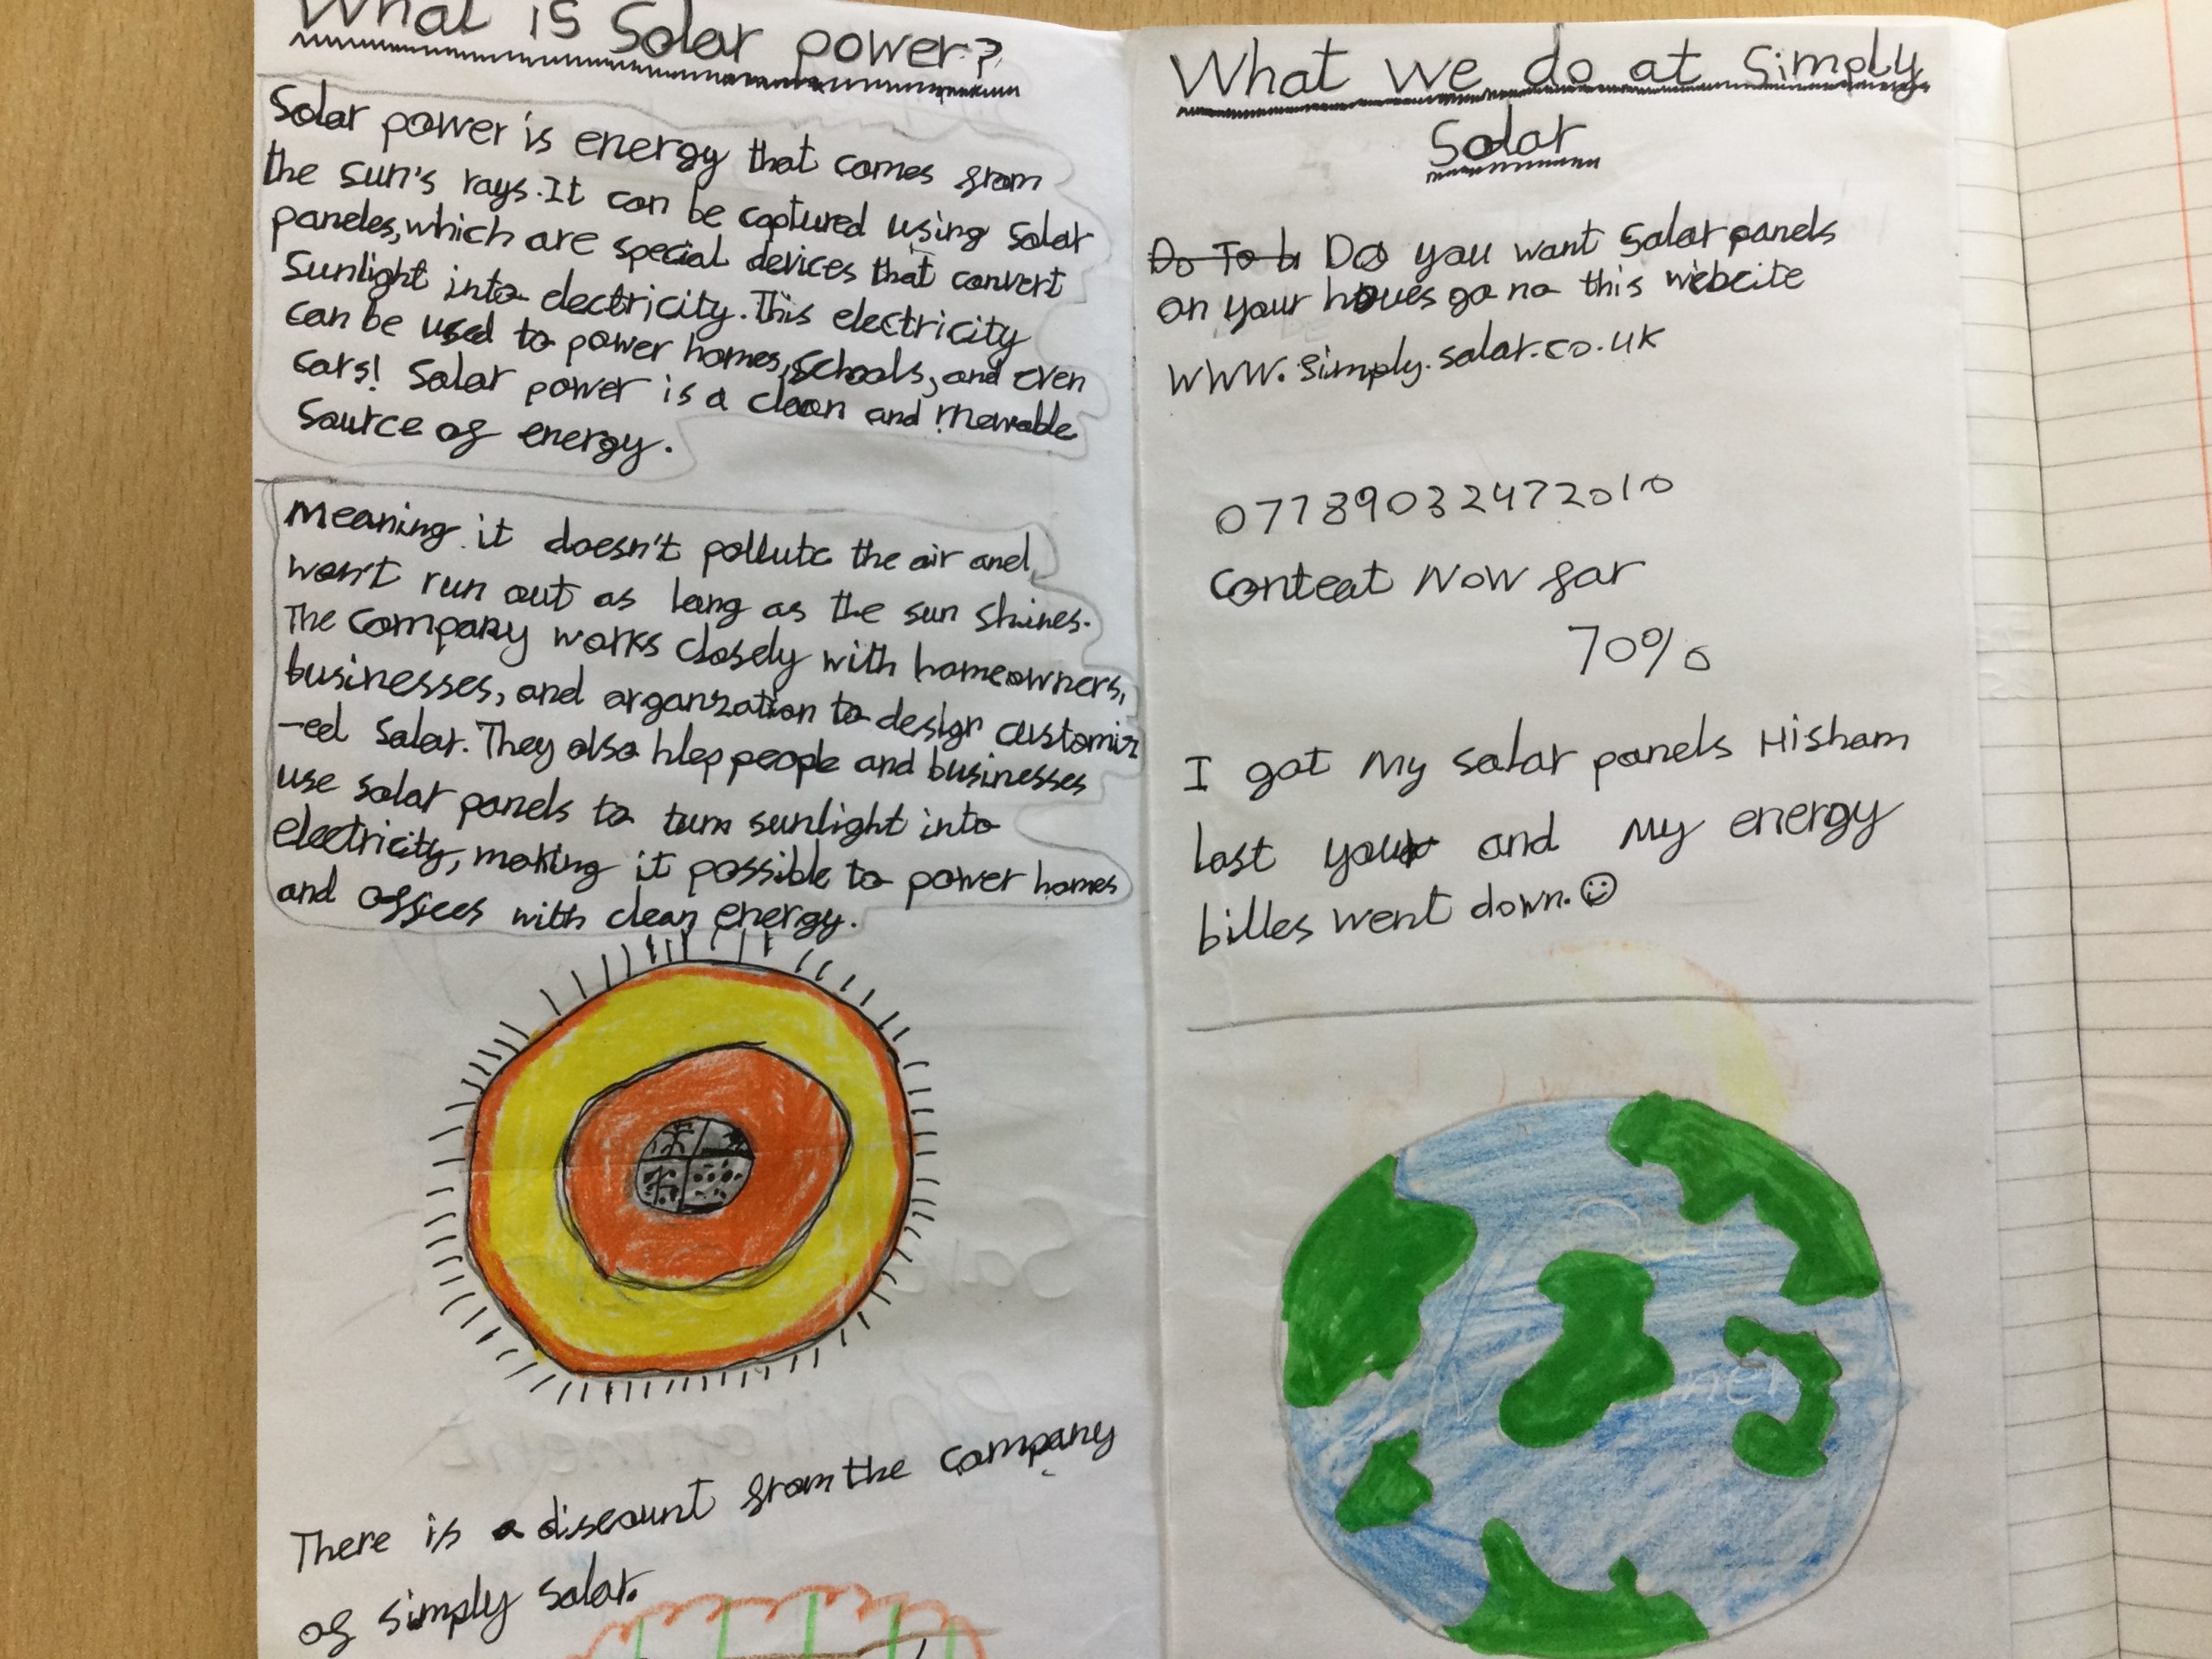 What is Solar power?
Solar power is energy that comes from
the sun's rays. It can be captured using solar
paneles, which are special devices that convert
sunlight into electricity. This electricity
can be used to power homes, schools, and even
cars! Solar power is a clean and renewable
source of energy.
Meaning it doesn't pollute the air and
won't run out as long as the sun shines.
The company works closely with homeowners,
businesses, and organization to design customiz
-ed solar. They also hlep people and businesses
use solar panels to turn sunlight into
electricity, making it possible to power homes
and offices with clean energy.
There is a discount from the company
of simply solar.
What we do at Simply
Solar
Do To b Do you want solar panels
on your houes go no this webcite
www.simply.solar.co.uk
07789032472010
Conteat Now for
70%
I got My solar panels Hisham
last your and My energy
billes went down.☺